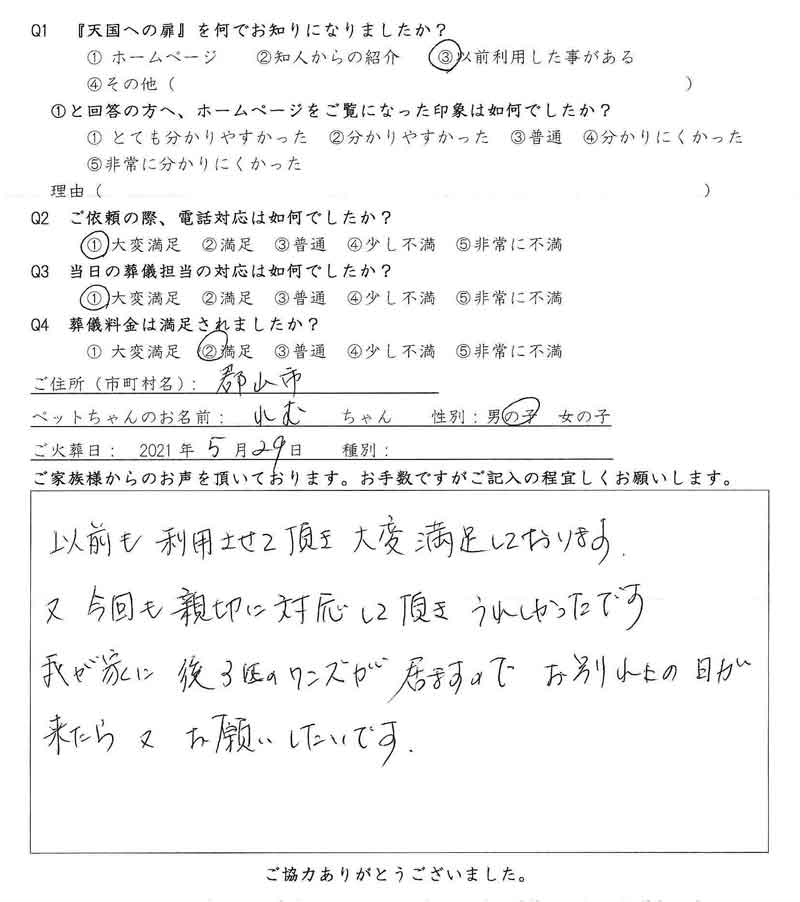 Q1 『天国への扉』を何でお知りになりましたか？
① ホームページ ②知人からの紹介 ③以前利用した事がある
④その他（ ）
①と回答の方へ、ホームページをご覧になった印象は如何でしたか？
① とても分かりやすかった ②分かりやすかった ③普通 ④分かりにくかった
⑤非常に分かりにくかった
理由（ ）
Q2 ご依頼の際、電話対応は如何でしたか？
①大変満足 ②満足 ③普通 ④少し不満 ⑤非常に不満
Q3 当日の葬儀担当の対応は如何でしたか？
①大変満足 ②満足 ③普通 ④少し不満 ⑤非常に不満
Q4 葬儀料金は満足されましたか？
① 大変満足 ②満足 ③普通 ④少し不満 ⑤非常に不満
ご住所（市町村名）： 郡山市
ペットちゃんのお名前： れむ ちゃん 性別：男の子 女の子
ご火葬日： 2021 年 5 月 29 日 種別：
ご家族様からのお声を頂いております。お手数ですがご記入の程宜しくお願いします。
以前も 利用させて頂き 大変満足しております.
又 今回も 親切に 対応して頂き うれしかったです
我が家に 後3匹のワンズが 居ますので お別れの日が
来たら 又 お願いしたいです.
ご協力ありがとうございました。